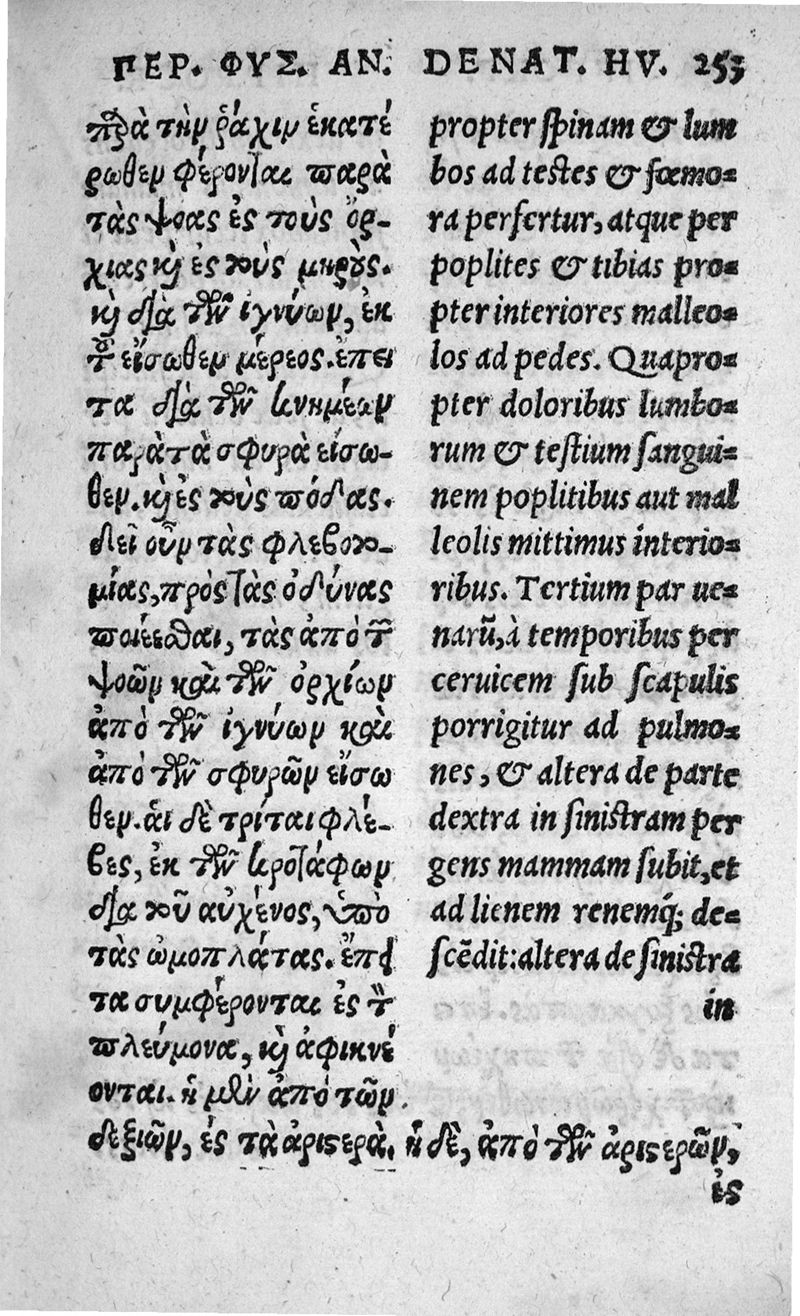 ΠΕΡ. ΦΥΣ. ΑΝ. DE NAT. HV. 253
παρὰ τὴν ῥάχιν ἑκατέ
ρωθεν φέρονται παρὰ
τὰς ψόας ἐς τοὺς ὄρ-
χιας κὶ ἐς τοὺς μηρούς.
κὶ διὰ τῶν ἰγνύων, ἐκ
τοῦ εἴσωθεν μέρεος. ἔπει
τα διὰ τῶν κνημέων
παρὰ τὰ σφυρὰ εἴσω-
θεν. κὶ ἐς τοὺς πόδας.
δεῖ οὖν τὰς φλεβοτο-
μίας, πρὸς τὰς ὀδύνας
ποιέεσθαι, τὰς ἀπὸ τῶν
ψοῶν καὶ τῶν ὀρχίων
ἀπὸ τῶν ἰγνύων καὶ
ἀπὸ τῶν σφυρῶν εἴσω
θεν. ἁι δὲ τρίται φλέ-
βες, ἐκ τῶν κροτάφων
διὰ τοῦ αὐχένος, ὑπὸ
τὰς ὠμοπλάτας. ἔπει
τα συμφέρονται ἐς τὸν
πλεύμονα, κὶ ἀφικνέ
ονται. ἡ μὲν ἀπὸ τῶν
δεξιῶν, ἐς τὰ ἀριστερὰ. ἡ δὲ, ἀπὸ τῶν ἀριστερῶν,
ἐς
propter spinam & lum
bos ad testes & fœmo-
ra perfertur, atque per
poplites & tibias pro-
pter interiores malleo-
los ad pedes. Quapro-
pter doloribus lumbo-
rum & testium sangui-
nem poplitibus aut mal
leolis mittimus interio-
ribus. Tertium par ue-
narũ, à temporibus per
ceruicem sub scapulis
porrigitur ad pulmo-
nes, & altera de parte
dextra in sinistram per
gens mammam subit, et
ad lienem renemq́; de-
scẽdit: altera de sinistra
in